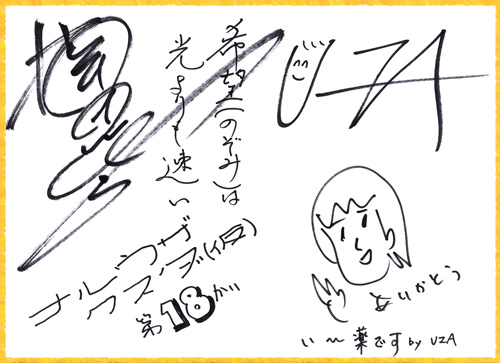 希望(のぞみ)は
光よりも速い
UZA
ナルウザ
ワスノダ(仮)
第18かい
ありがとう
い〜薬です by UZA